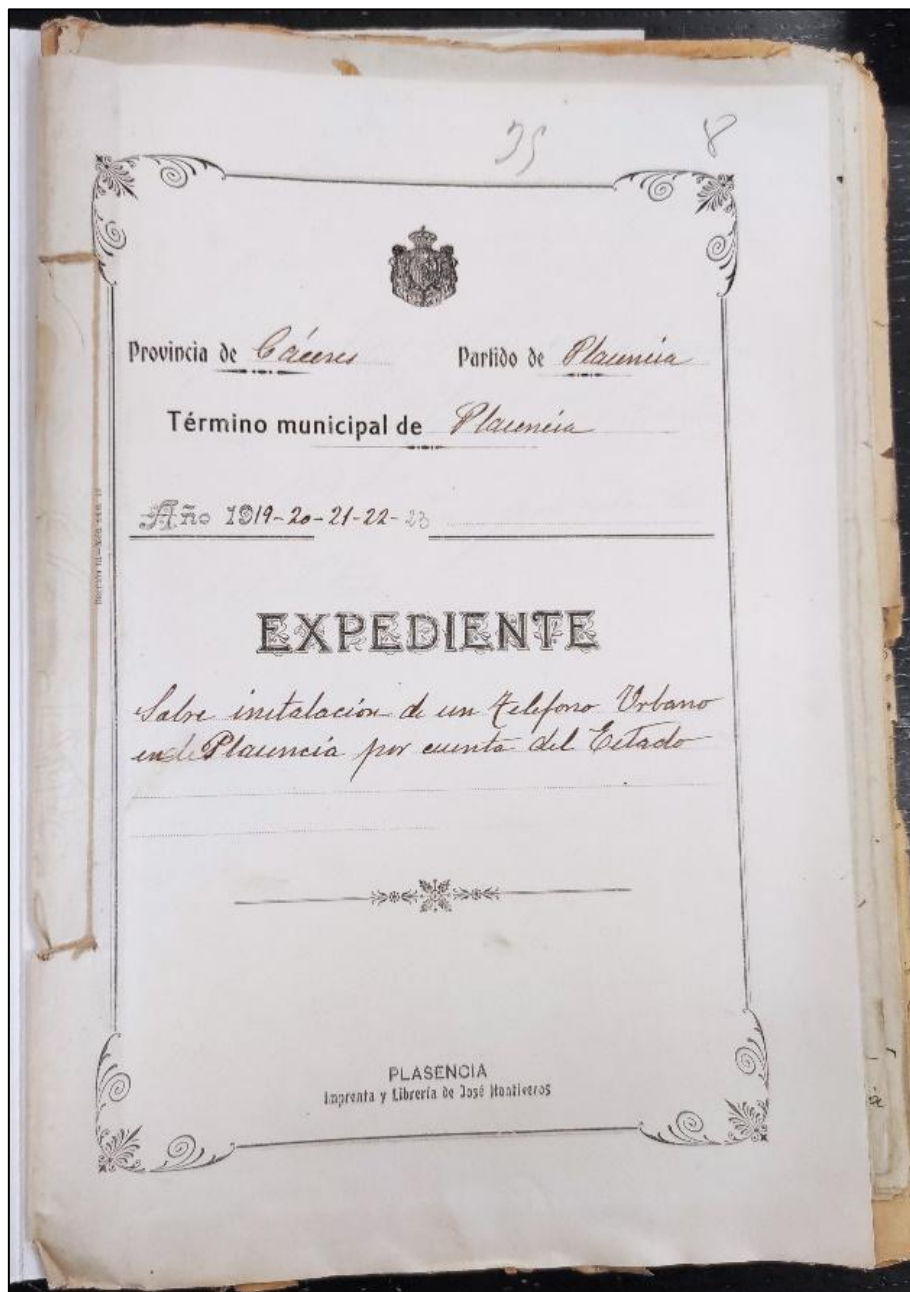 35 8
Provincia de Cáceres Partido de Plasencia
Término municipal de Plasencia
Año 1919-20-21-22-23
EXPEDIENTE
Sobre instalación de un teléfono Urbano
en de Plasencia por cuenta del Estado
PLASENCIA
Imprenta y Librería de José Montiveros